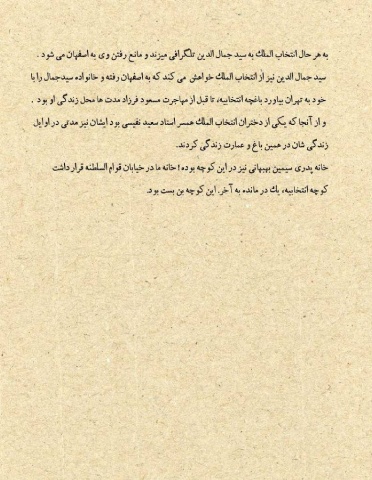 به هر حال انتخاب الملك به سید جمال الدین تلگرافی میزند و مانع رفتن وی به اصفهان می شود .
سید جمال الدین نیز از انتخاب الملك خواهش می کند که به اصفهان رفته و خانواده سیدجمال را با
خود به تهران بیاورد باغچه انتخابیه، تا قبل از مهاجرت مسعود فرزاد مدت ها محل زندگی او بود .
و از آنجا که یکی از دختران انتخاب الملك همسر استاد سعید نفیسی بود ایشان نیز مدتی در اوایل
زندگی شان در همین باغ و عمارت زندگی کردند.
خانه پدری سیمین بهبهانی نیز در این کوچه بوده ؛ خانه ما در خیابان قوام السلطنه قرار داشت
کوچه انتخابیه، یك در مانده به آخر. این کوچه بن بست بود.